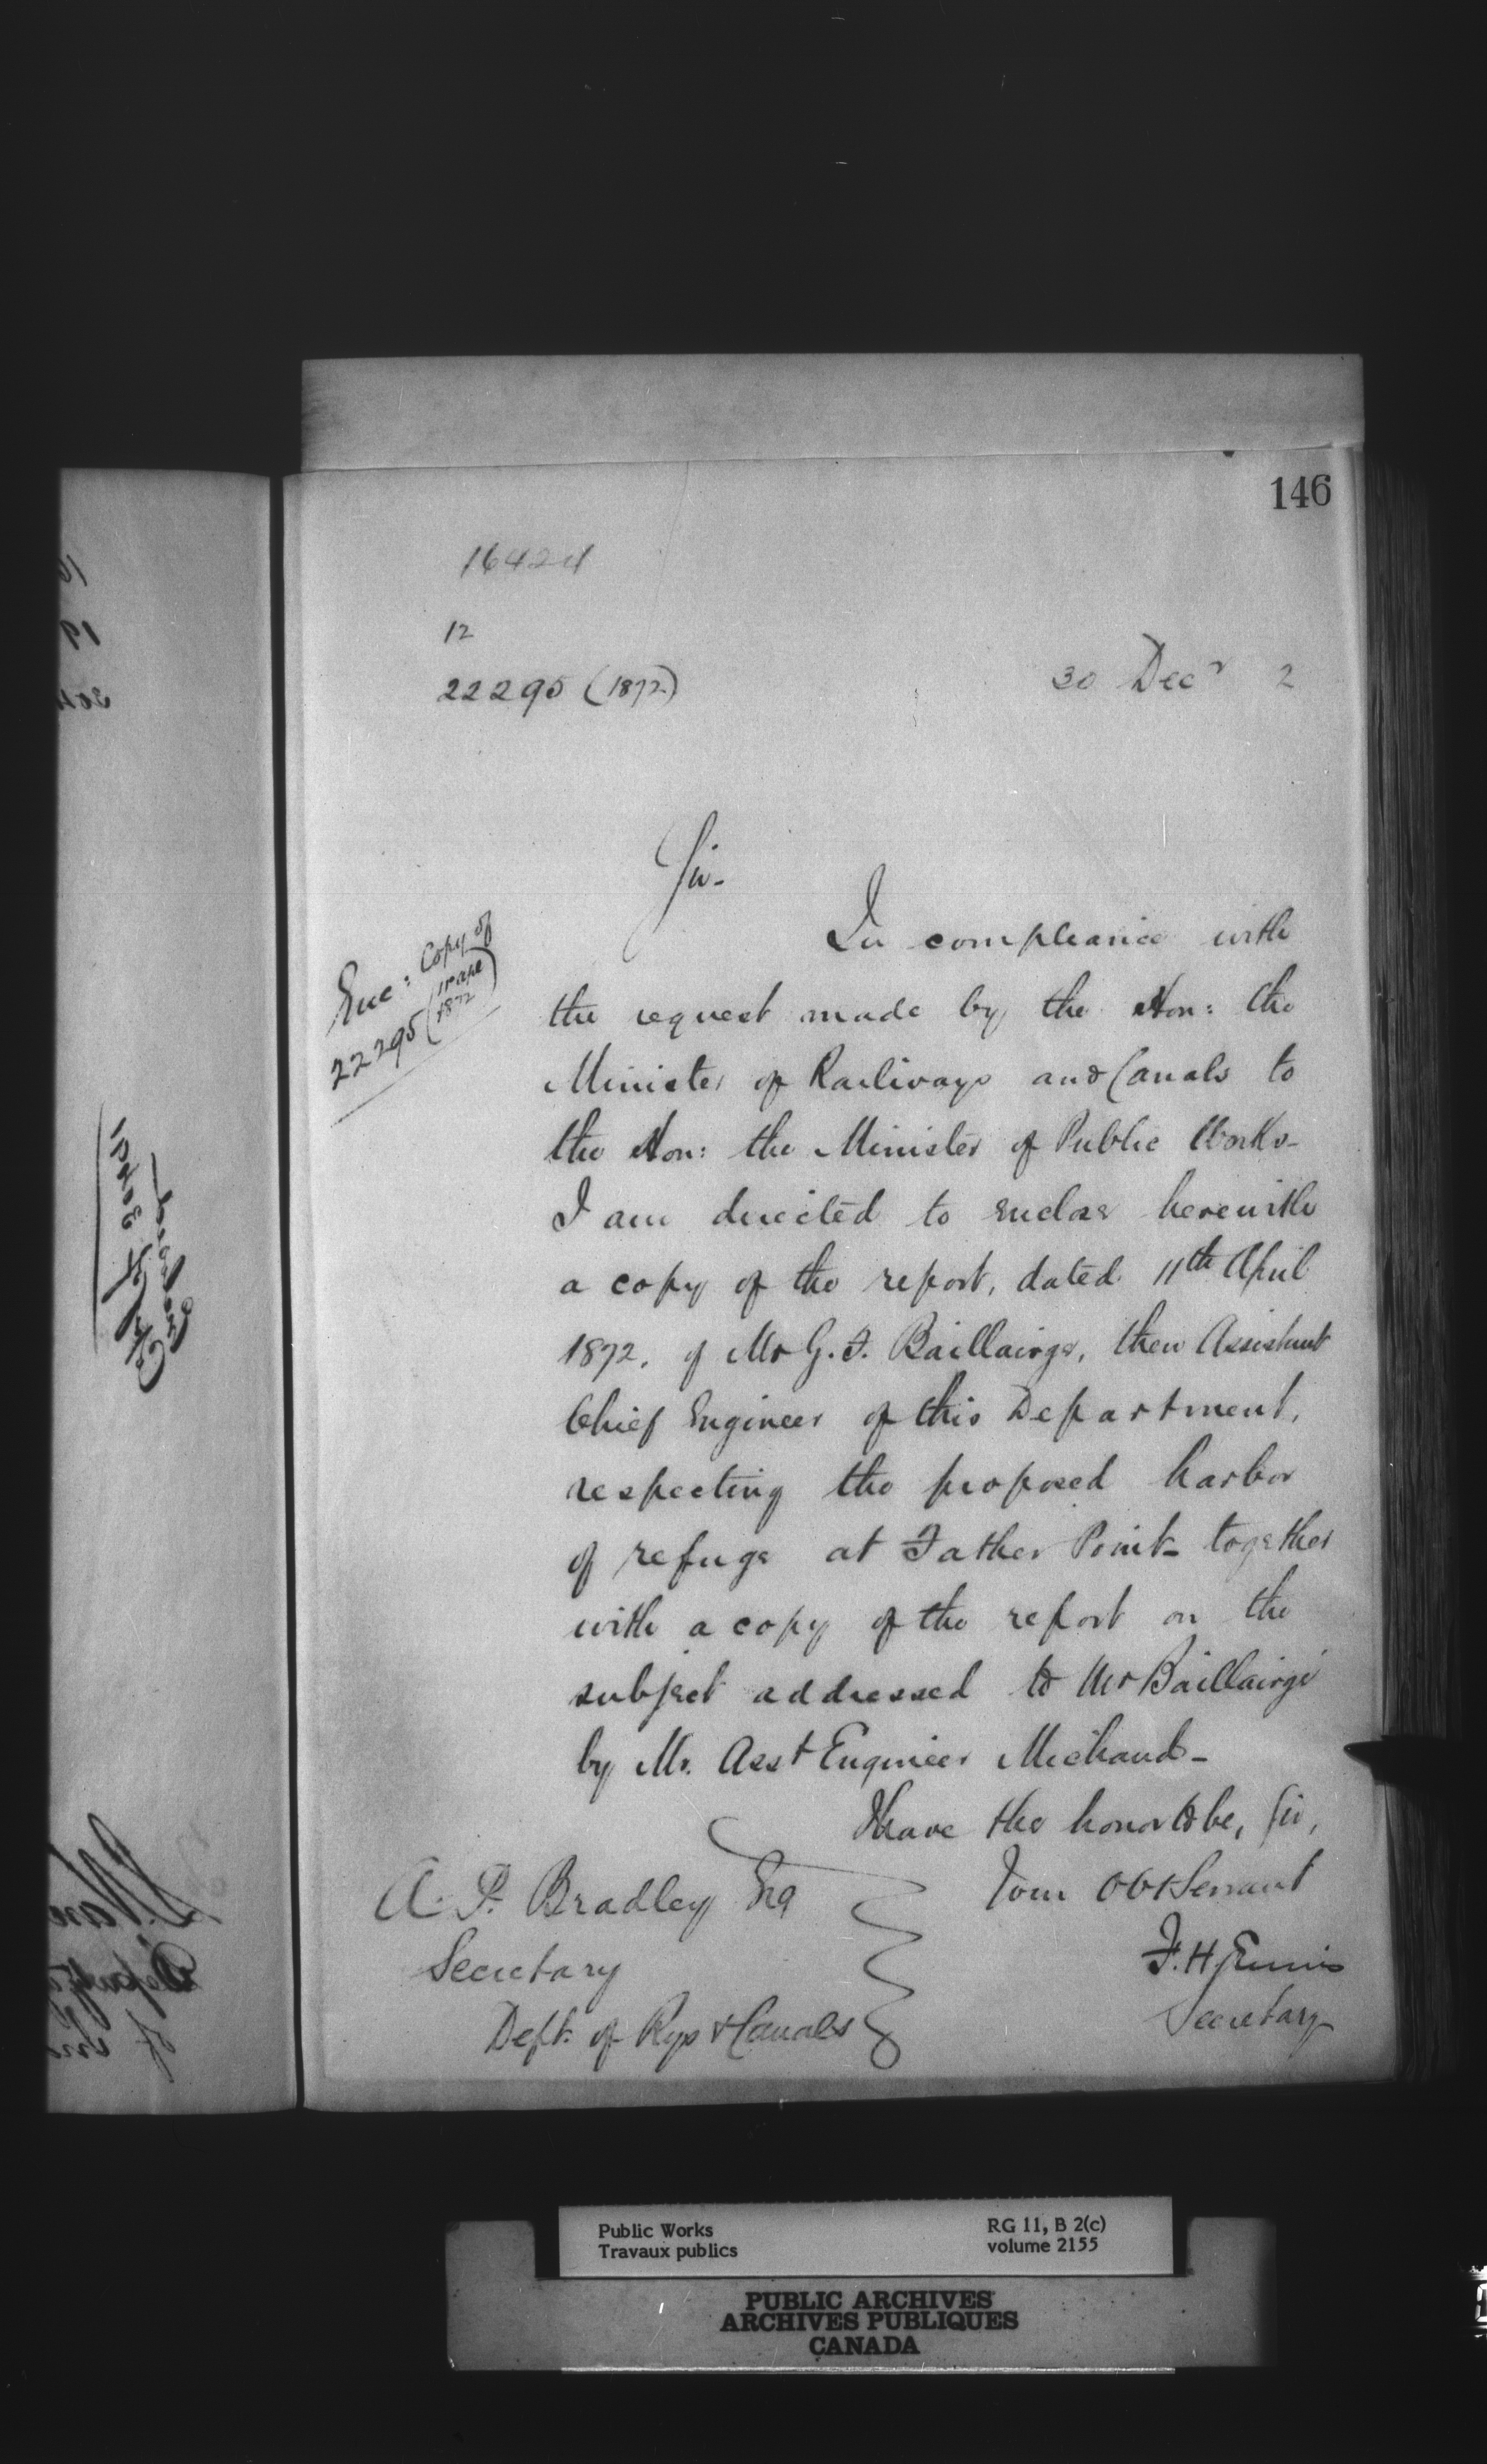 146
16424
12
22295 (1872)
30 Decr 2
Sir-
In compliance with
the request made by the Hon: the
Minister of Railways and Canals to
the Hon: the Minister of Public Works-
I am directed to enclose herewith
a copy of the report, dated 11th April
1872, of Mr G. F. Baillairgé, then Assistant
Chief Engineer of this Department,
respecting the proposed harbor
of refuge at Father Point- together
with a copy of the report on the
subject addressed to Mr Baillairgé
by Mr. Asst Engineer Michaud-
I have the honor to be, Sir,
Your obt Servant
F. H. Ennis
Secretary
A. P. Bradley Esq
Secretary
Dept. of Rys & Canals
Enc: Copy of
22295
1872
Public Works
Travaux publics
RG 11, B 2(c)
volume 2155
PUBLIC ARCHIVES
ARCHIVES PUBLIQUES
CANADA